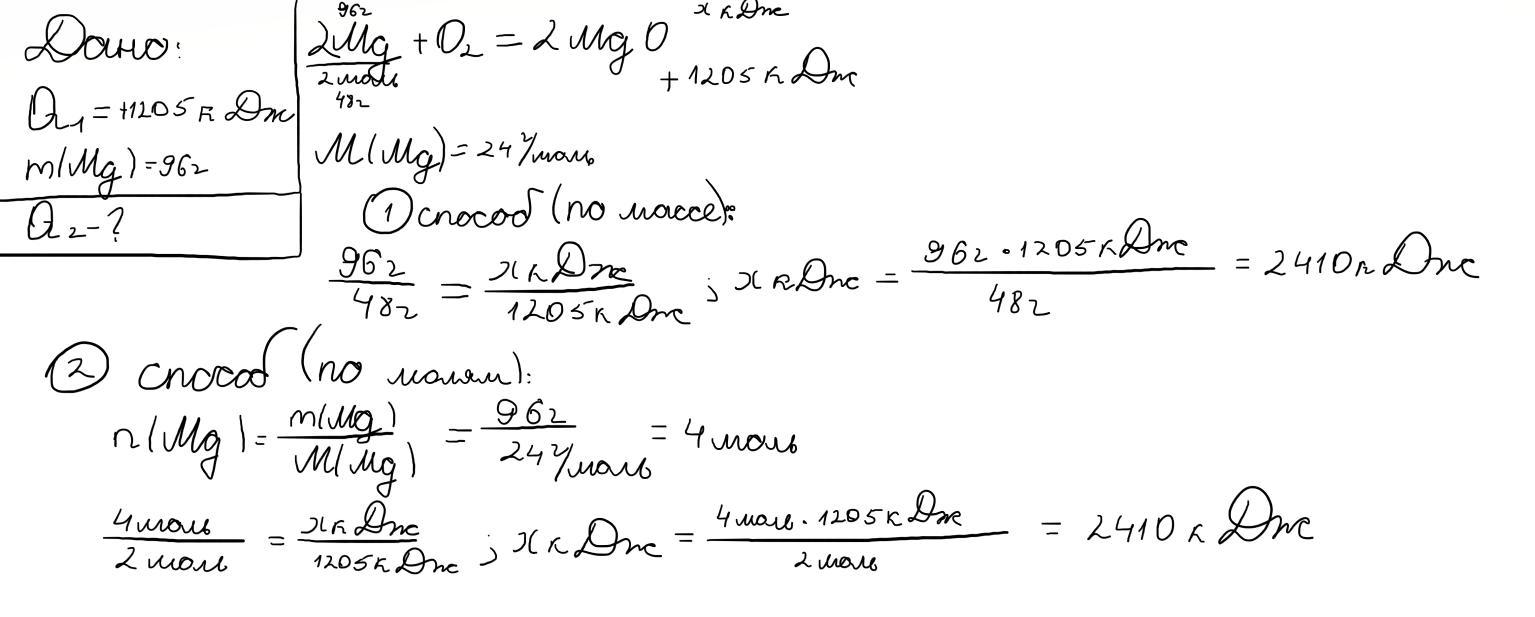 Дано:
Q₁ = +1205 кДж
m(Mg) = 96г
Q₂ - ?
96г x кДж
2Mg + O₂ = 2MgO + 1205 кДж
2 моль
48г
M(Mg) = 24 г/моль
① способ (по массе):
96г/48г = x кДж/1205 кДж ; x кДж = 96г · 1205 кДж/48г = 2410 кДж
② способ (по молям):
n(Mg) = m(Mg)/M(Mg) = 96г/24 г/моль = 4 моль
4 моль/2 моль = x кДж/1205 кДж ; x кДж = 4 моль · 1205 кДж/2 моль = 2410 кДж